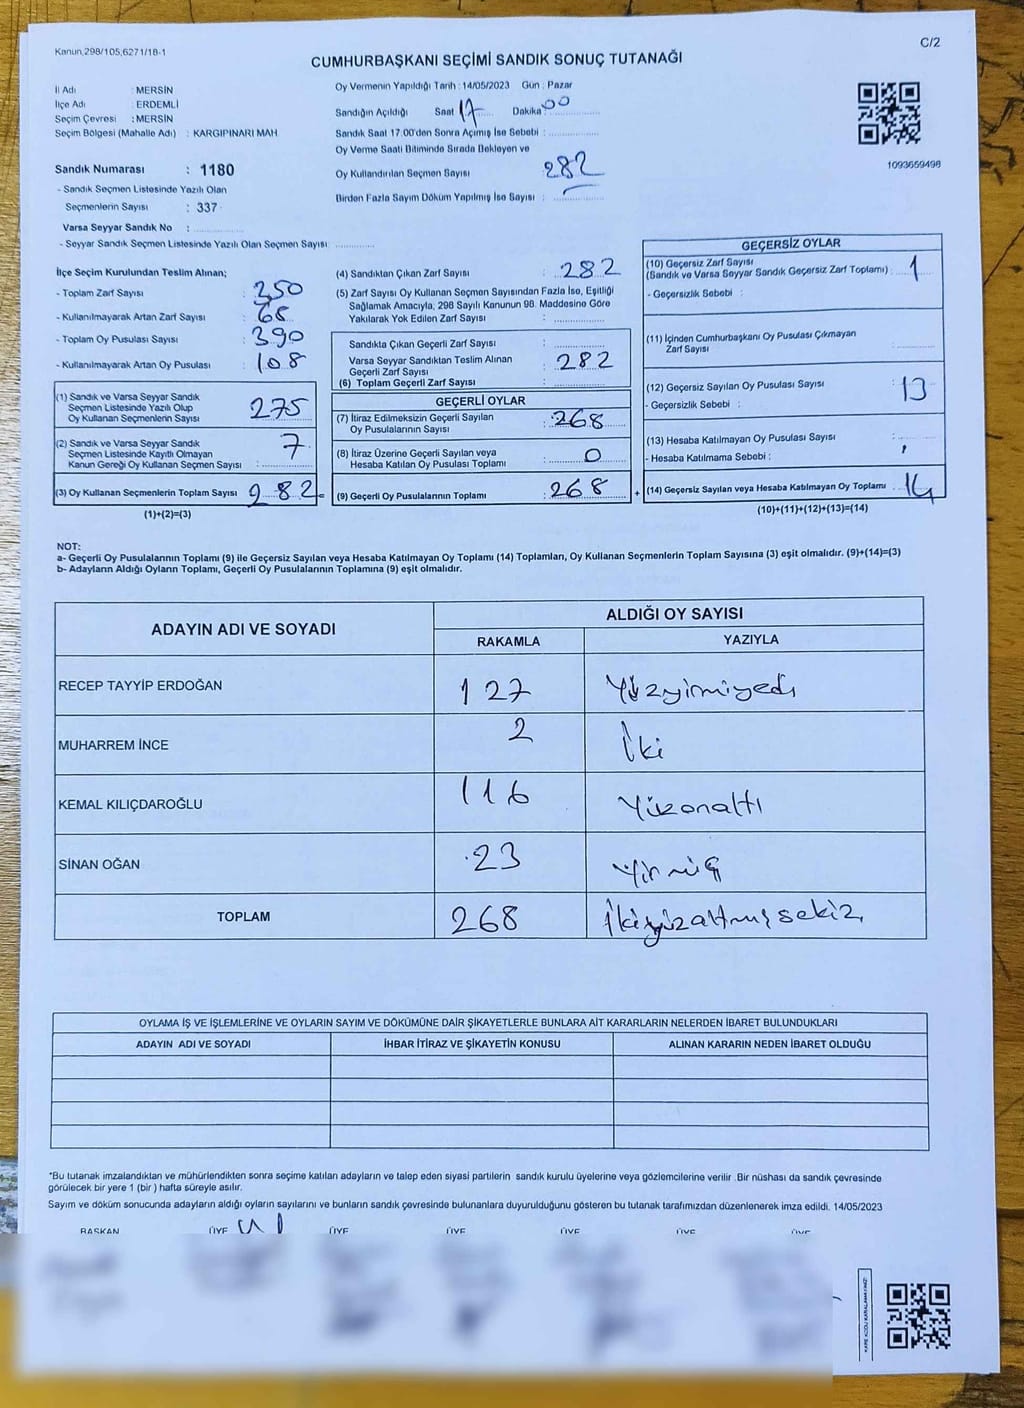 Kanun,298/105,6271/18-1
C/2
CUMHURBAŞKANI SEÇİMİ SANDIK SONUÇ TUTANAĞI
İl Adı : MERSİN
İlçe Adı : ERDEMLİ
Seçim Çevresi : MERSİN
Seçim Bölgesi (Mahalle Adı) : KARGIPINARI MAH
Oy Vermenin Yapıldığı Tarih : 14/05/2023 Gün : Pazar
Sandığın Açıldığı Saat 17 Dakika 00
Sandık Saat 17.00'den Sonra Açımış İse Sebebi :
Oy Verme Saati Bitiminde Sırada Bekleyen ve
Oy Kullandırılan Seçmen Sayısı 282
Birden Fazla Sayım Döküm Yapılmış İse Sayısı :
1093659498
Sandık Numarası : 1180
- Sandık Seçmen Listesinde Yazılı Olan
Seçmenlerin Sayısı : 337
Varsa Seyyar Sandık No :
- Seyyar Sandık Seçmen Listesinde Yazılı Olan Seçmen Sayısı
İlçe Seçim Kurulundan Teslim Alınan;
- Toplam Zarf Sayısı : 350
- Kullanılmayarak Artan Zarf Sayısı : 68
- Toplam Oy Pusulası Sayısı : 390
- Kullanılmayarak Artan Oy Pusulası : 108
(1) Sandık ve Varsa Seyyar Sandık
Seçmen Listesinde Yazılı Olup
Oy Kullanan Seçmenlerin Sayısı 275
(2) Sandık ve Varsa Seyyar Sandık
Seçmen Listesinde Kayıtlı Olmayan
Kanun Gereği Oy Kullanan Seçmen Sayısı : 7
(3) Oy Kullanan Seçmenlerin Toplam Sayısı 282 =
(1)+(2)=(3)
(4) Sandıktan Çıkan Zarf Sayısı : 282
(5) Zarf Sayısı Oy Kullanan Seçmen Sayısından Fazla İse, Eşitliği
Sağlamak Amacıyla, 298 Sayılı Kanunun 98. Maddesine Göre
Yakılarak Yok Edilen Zarf Sayısı :
Sandıkta Çıkan Geçerli Zarf Sayısı :
Varsa Seyyar Sandıktan Teslim Alınan
Geçerli Zarf Sayısı : 282
(6) Toplam Geçerli Zarf Sayısı :
GEÇERLİ OYLAR
(7) İtiraz Edilmeksizin Geçerli Sayılan
Oy Pusulalarının Sayısı : 268
(8) İtiraz Üzerine Geçerli Sayılan veya
Hesaba Katılan Oy Pusulası Toplamı : 0
(9) Geçerli Oy Pusulalarının Toplamı : 268 +
GEÇERSİZ OYLAR
(10) Geçersiz Zarf Sayısı
(Sandık ve Varsa Seyyar Sandık Geçersiz Zarf Toplamı) : 1
- Geçersizlik Sebebi :
(11) İçinden Cumhurbaşkanı Oy Pusulası Çıkmayan
Zarf Sayısı
(12) Geçersiz Sayılan Oy Pusulası Sayısı : 13
- Geçersizlik Sebebi :
(13) Hesaba Katılmayan Oy Pusulası Sayısı :
- Hesaba Katılmama Sebebi :
(14) Geçersiz Sayılan veya Hesaba Katılmayan Oy Toplamı 14
(10)+(11)+(12)+(13)=(14)
NOT:
a- Geçerli Oy Pusulalarının Toplamı (9) ile Geçersiz Sayılan veya Hesaba Katılmayan Oy Toplamı (14) Toplamları, Oy Kullanan Seçmenlerin Toplam Sayısına (3) eşit olmalıdır. (9)+(14)=(3)
b- Adayların Aldığı Oyların Toplamı, Geçerli Oy Pusulalarının Toplamına (9) eşit olmalıdır.
ADAYIN ADI VE SOYADI ALDIĞI OY SAYISI
RAKAMLA YAZIYLA
RECEP TAYYİP ERDOĞAN 127 Yüzyirmiyedi
MUHARREM İNCE 2 İki
KEMAL KILIÇDAROĞLU 116 Yüzonaltı
SİNAN OĞAN 23
TOPLAM 268 İkiyüzaltmışsekiz
OYLAMA İŞ VE İŞLEMLERİNE VE OYLARIN SAYIM VE DÖKÜMÜNE DAİR ŞİKAYETLERLE BUNLARA AİT KARARLARIN NELERDEN İBARET BULUNDUKLARI
ADAYIN ADI VE SOYADI İHBAR İTİRAZ VE ŞİKAYETİN KONUSU ALINAN KARARIN NEDEN İBARET OLDUĞU
*Bu tutanak imzalandıktan ve mühürlendikten sonra seçime katılan adayların ve talep eden siyasi partilerin sandık kurulu üyelerine veya gözlemcilerine verilir .Bir nüshası da sandık çevresinde
görülecek bir yere 1 (bir ) hafta süreyle asılır.
Sayım ve döküm sonucunda adayların aldığı oyların sayılarını ve bunların sandık çevresinde bulunanlara duyurulduğunu gösteren bu tutanak tarafımızdan düzenlenerek imza edildi. 14/05/2023
BAŞKAN ÜYE ÜYE ÜYE ÜYE ÜYE ÜYE